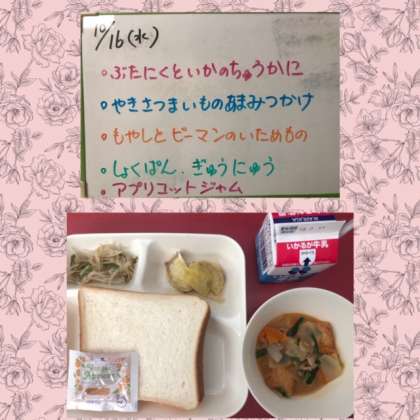 10/16(水)
ぶたにくといかのちゅうかに
やきさつまいものあまみつかけ
もやしとピーマンのいためもの
しょくぱん、ぎゅうにゅう
アプリコットジャム
いかるが牛乳